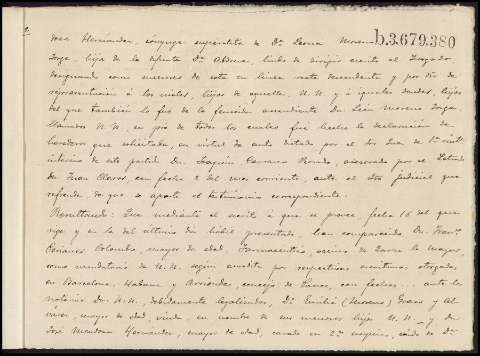 b.3.679.380
José Hernández, cónyuge superstite de Dª Leona Moreno
Jorge, hija de la difunta Dª Aldonza, hubo de dirigir escrito al Juzgado,
designando como sucesores de esta en línea recta descendente y por dro de
representación á los nietos, hijos de aquella, N. N. y á iguales dados, hijos
del que también lo fué de la fenecida ascendiente Dn León Moreno Jorge
llamados N. N. en pro de todos los cuales fué hecha la declaración de
herederos que solicitaba, en virtud de auto dictado por el Sor Juez de 1ª inst
interino de este partido Dn Joaquín Carrasco asesorado por el Letrado
Dn Juan Claros, con fecha 2 del mes corriente, ante el Srio judicial que
refrenda de que se aporta el testimonio correspondiente.
Resultando: Que mediante el escrito á que se provee, fecha 16 del que
rige y en la del último día hábil presentado, han comparecido Dn Franco
Cañares Colombo, mayor de edad, Farmacéutico, vecino de la mayor,
como mandatario de N. N. según acredita por respectivas escrituras otorgadas
en Barcelona, Habana y Arriondas, concejo de Parres, con fechas... ante los
notarios Dn N. N. debidamente legalizadas, Dª Emilia (Moreno) Bravo y
mayor de edad, viuda, en nombre de sus menores hijos N. N. y Dn
José Mendoza Hernández, mayor de edad, casado en 2as nupcias, viudo de Dª